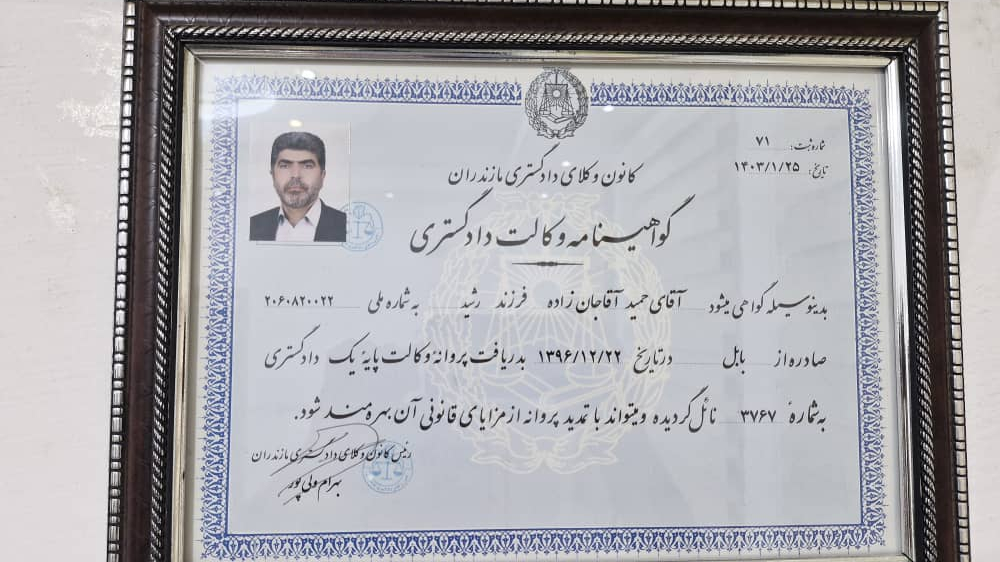 شماره ثبت: ۷۱
تاریخ: ۱۴۰۳/۱/۲۵
کانون وکلای دادگستری مازندران
گواهینامه وکالت دادگستری
بدینوسیله گواهی میشود آقای حمید آقاجان زاده فرزند رشید به شماره ملی ۲۰۶۰۸۲۰۰۲۲
صادره از بابل در تاریخ ۱۳۹۶/۱۲/۲۲ بدریافت پروانهٔ وکالت پایهٔ یک دادگستری
به شمارهٔ ۳۷۶۷ نائل گردیده و میتواند با تمدید پروانه از مزایای قانونی آن بهره مند شود.
رئیس کانون وکلای دادگستری مازندران
بهرام ولی پور